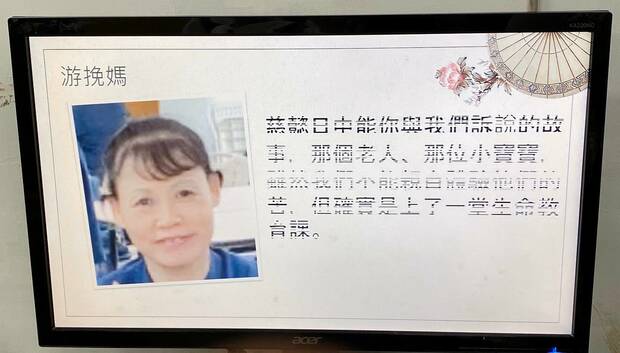 游挽媽
慈懿日中能你與我們訴說的故
事，那個老人、那位小寶寶，
雖然我們不能親自體驗他們的
苦，但確實是上了一堂生命教
育課。
acer